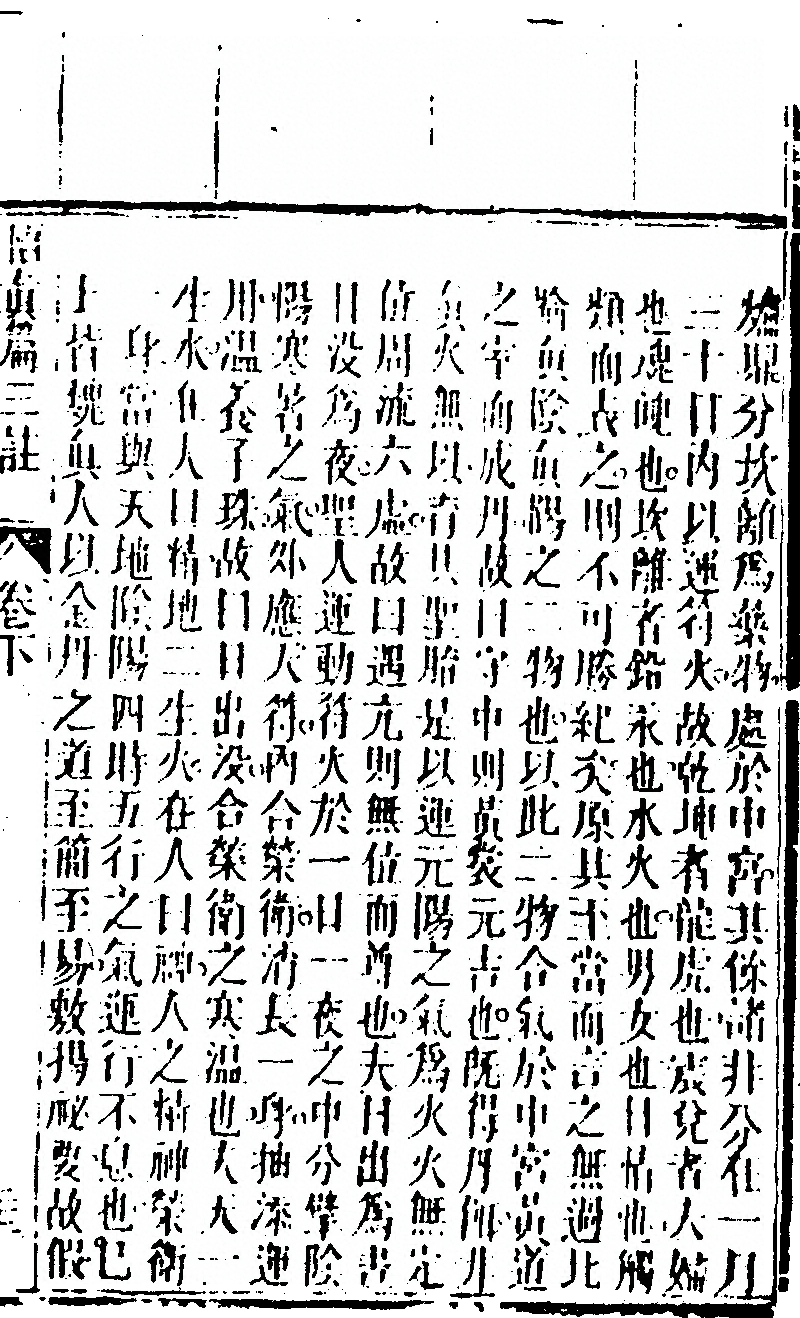 爐鼎分坎離爲藥物處於中宮其餘諸卦分在一月
三十日內以運符火故乾坤者龍虎也震兌者夫婦
也魂魄也坎離者鉛汞也水火也男女也日也觸
類而長之則不可勝紀矣原其至當而言之無過此
眞陰眞陽之二物也以此二物合氣於中宮黃道
之室而成丹故曰守中則黃裳元吉也旣得丹
眞火無以育其聖胎是以運元陽之氣爲火火無定
位周流六虛故曰遇亢則無位而尊也夫日出爲晝
日没爲夜聖人運動符火於一日一夜之中分擘陰
陽寒暑之氣外應天符內合榮衛消長一身抽添運
用溫養子珠故曰日出没合榮衛之寒溫也夫天一
生水在人曰精地二生火在人曰神人之精神榮衛
一身當與天地陰陽四時五行之氣運行不息也已
上皆塊眞人以金丹之道至簡至易敷揚祕要故假
悟眞篇三註 卷下